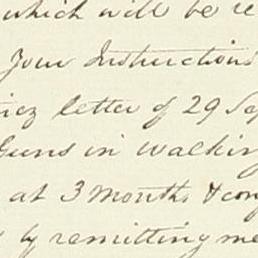 which will be re
Your Instructions
letter of 29 Sep
Guns in walkin
at 3 Months & con
by remitting me